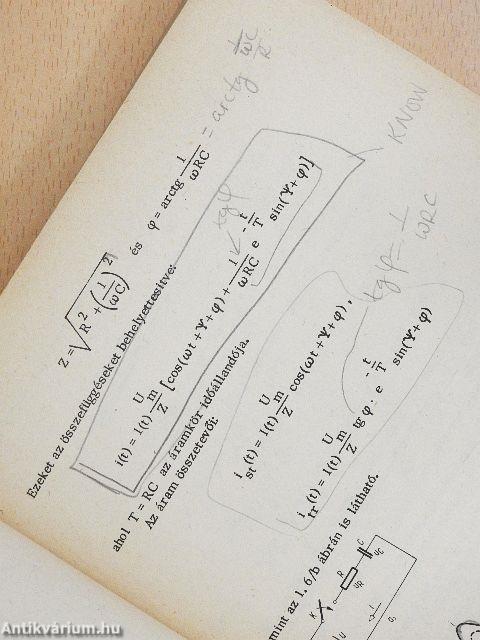 Z = √(R² + (1/ωC)²) és φ = arctg 1/ωRC = arctg (1/ωC)/R
Ezeket az összefüggéseket behelyettesítve:
tg φ
i(t) = 1(t) Um/Z [cos(ωt + Ψ + φ) + 1/ωRC e^(-t/T) sin(Ψ + φ)]
KNOW
ahol T = RC az áramkör időállandója.
Az áram összetevői:
tg φ = 1/ωRC
i st (t) = 1(t) Um/Z cos(ωt + Ψ + φ),
i tr (t) = 1(t) Um/Z tg φ · e^(-t/T) sin(Ψ + φ)
mint az 1.6/b ábrán is látható.
K
R
C
UR
UC
Antikvárium.hu